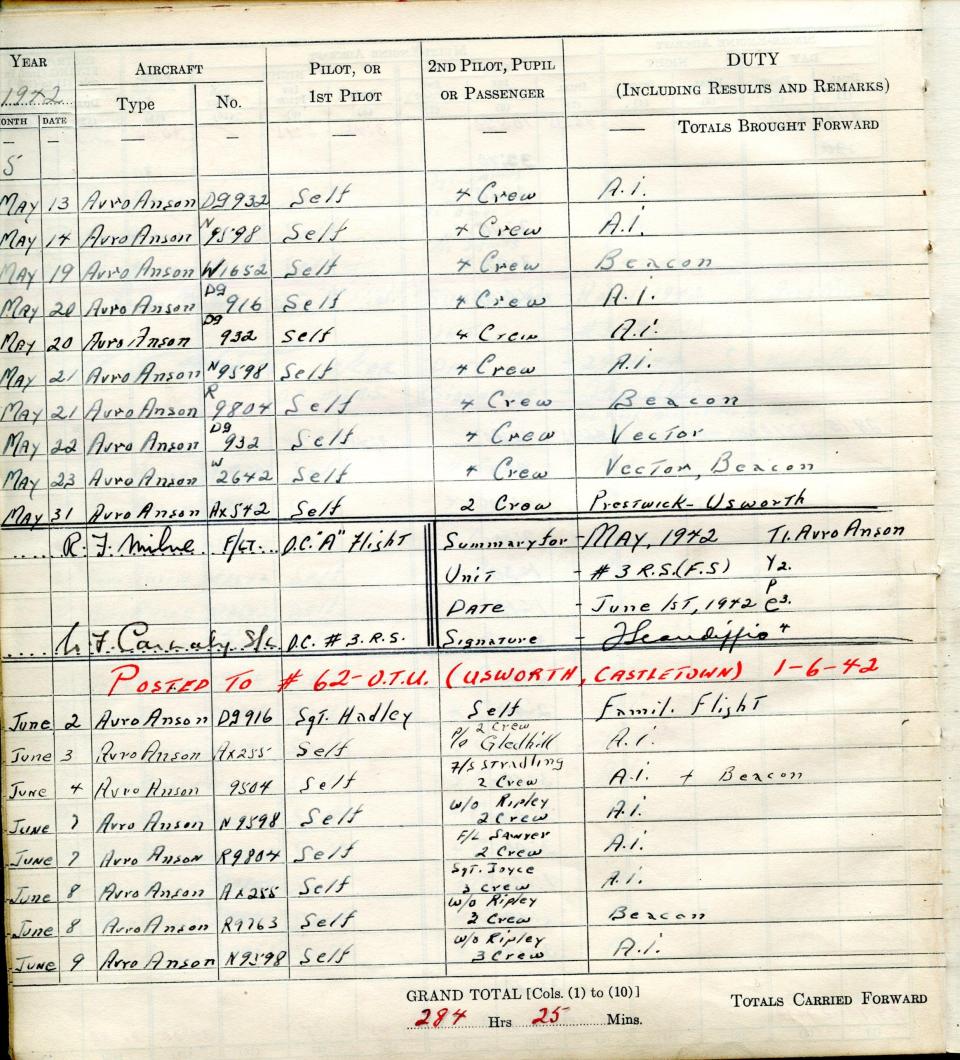 YEAR AIRCRAFT PILOT, OR 1ST PILOT 2ND PILOT, PUPIL OR PASSENGER DUTY (INCLUDING RESULTS AND REMARKS)
1942 Type No.
ONTH DATE
— — — — — — — TOTALS BROUGHT FORWARD
5
MAY 13 Avro Anson DG932 Self 4 Crew A.i.
MAY 14 Avro Anson N9598 Self 4 Crew A.i.
MAY 19 Avro Anson W1652 Self 4 Crew Beacon
MAY 20 Avro Anson DG916 Self 4 Crew A.i.
MAY 20 Avro Anson DG932 Self 4 Crew A.i.
MAY 21 Avro Anson N9598 Self 4 Crew A.i.
MAY 21 Avro Anson R9804 Self 4 Crew Beacon
MAY 22 Avro Anson DG932 Self 4 Crew Vector
MAY 23 Avro Anson W2642 Self 4 Crew Vector, Beacon
MAY 31 Avro Anson Ax542 Self 2 Crew Prestwick-Usworth
R. F. Milne F/LT. O.C. "A" Flight Summary for - MAY, 1942 T1. Avro Anson
Unit - # 3 R.S.(F.S) Y2.
DATE - June 1st, 1942 P e3.
F. S/L O.C. # 3. R.S. Signature - 4
POSTED TO # 62-O.T.U. (USWORTH, CASTLETOWN) 1-6-42
June 2 Avro Anson DG916 Sgt. Hadley Self 2 Crew Famil. Flight
June 3 Avro Anson Ax255 Self P/O Gledhill A.i.
June 4 Avro Anson 9504 Self F/S Stradling 2 Crew A.i. + Beacon
June 7 Avro Anson N9598 Self W/O Ripley 2 Crew A.i.
June 7 Avro Anson R9804 Self F/L Sawyer 2 Crew A.i.
June 8 Avro Anson Ax255 Self Sgt. Joyce 3 Crew A.i.
June 8 Avro Anson R9763 Self W/O Ripley 3 Crew Beacon
June 9 Avro Anson N9598 Self W/O Ripley 3 Crew A.i.
GRAND TOTAL [Cols. (1) to (10)] TOTALS CARRIED FORWARD
284 Hrs 25 Mins.